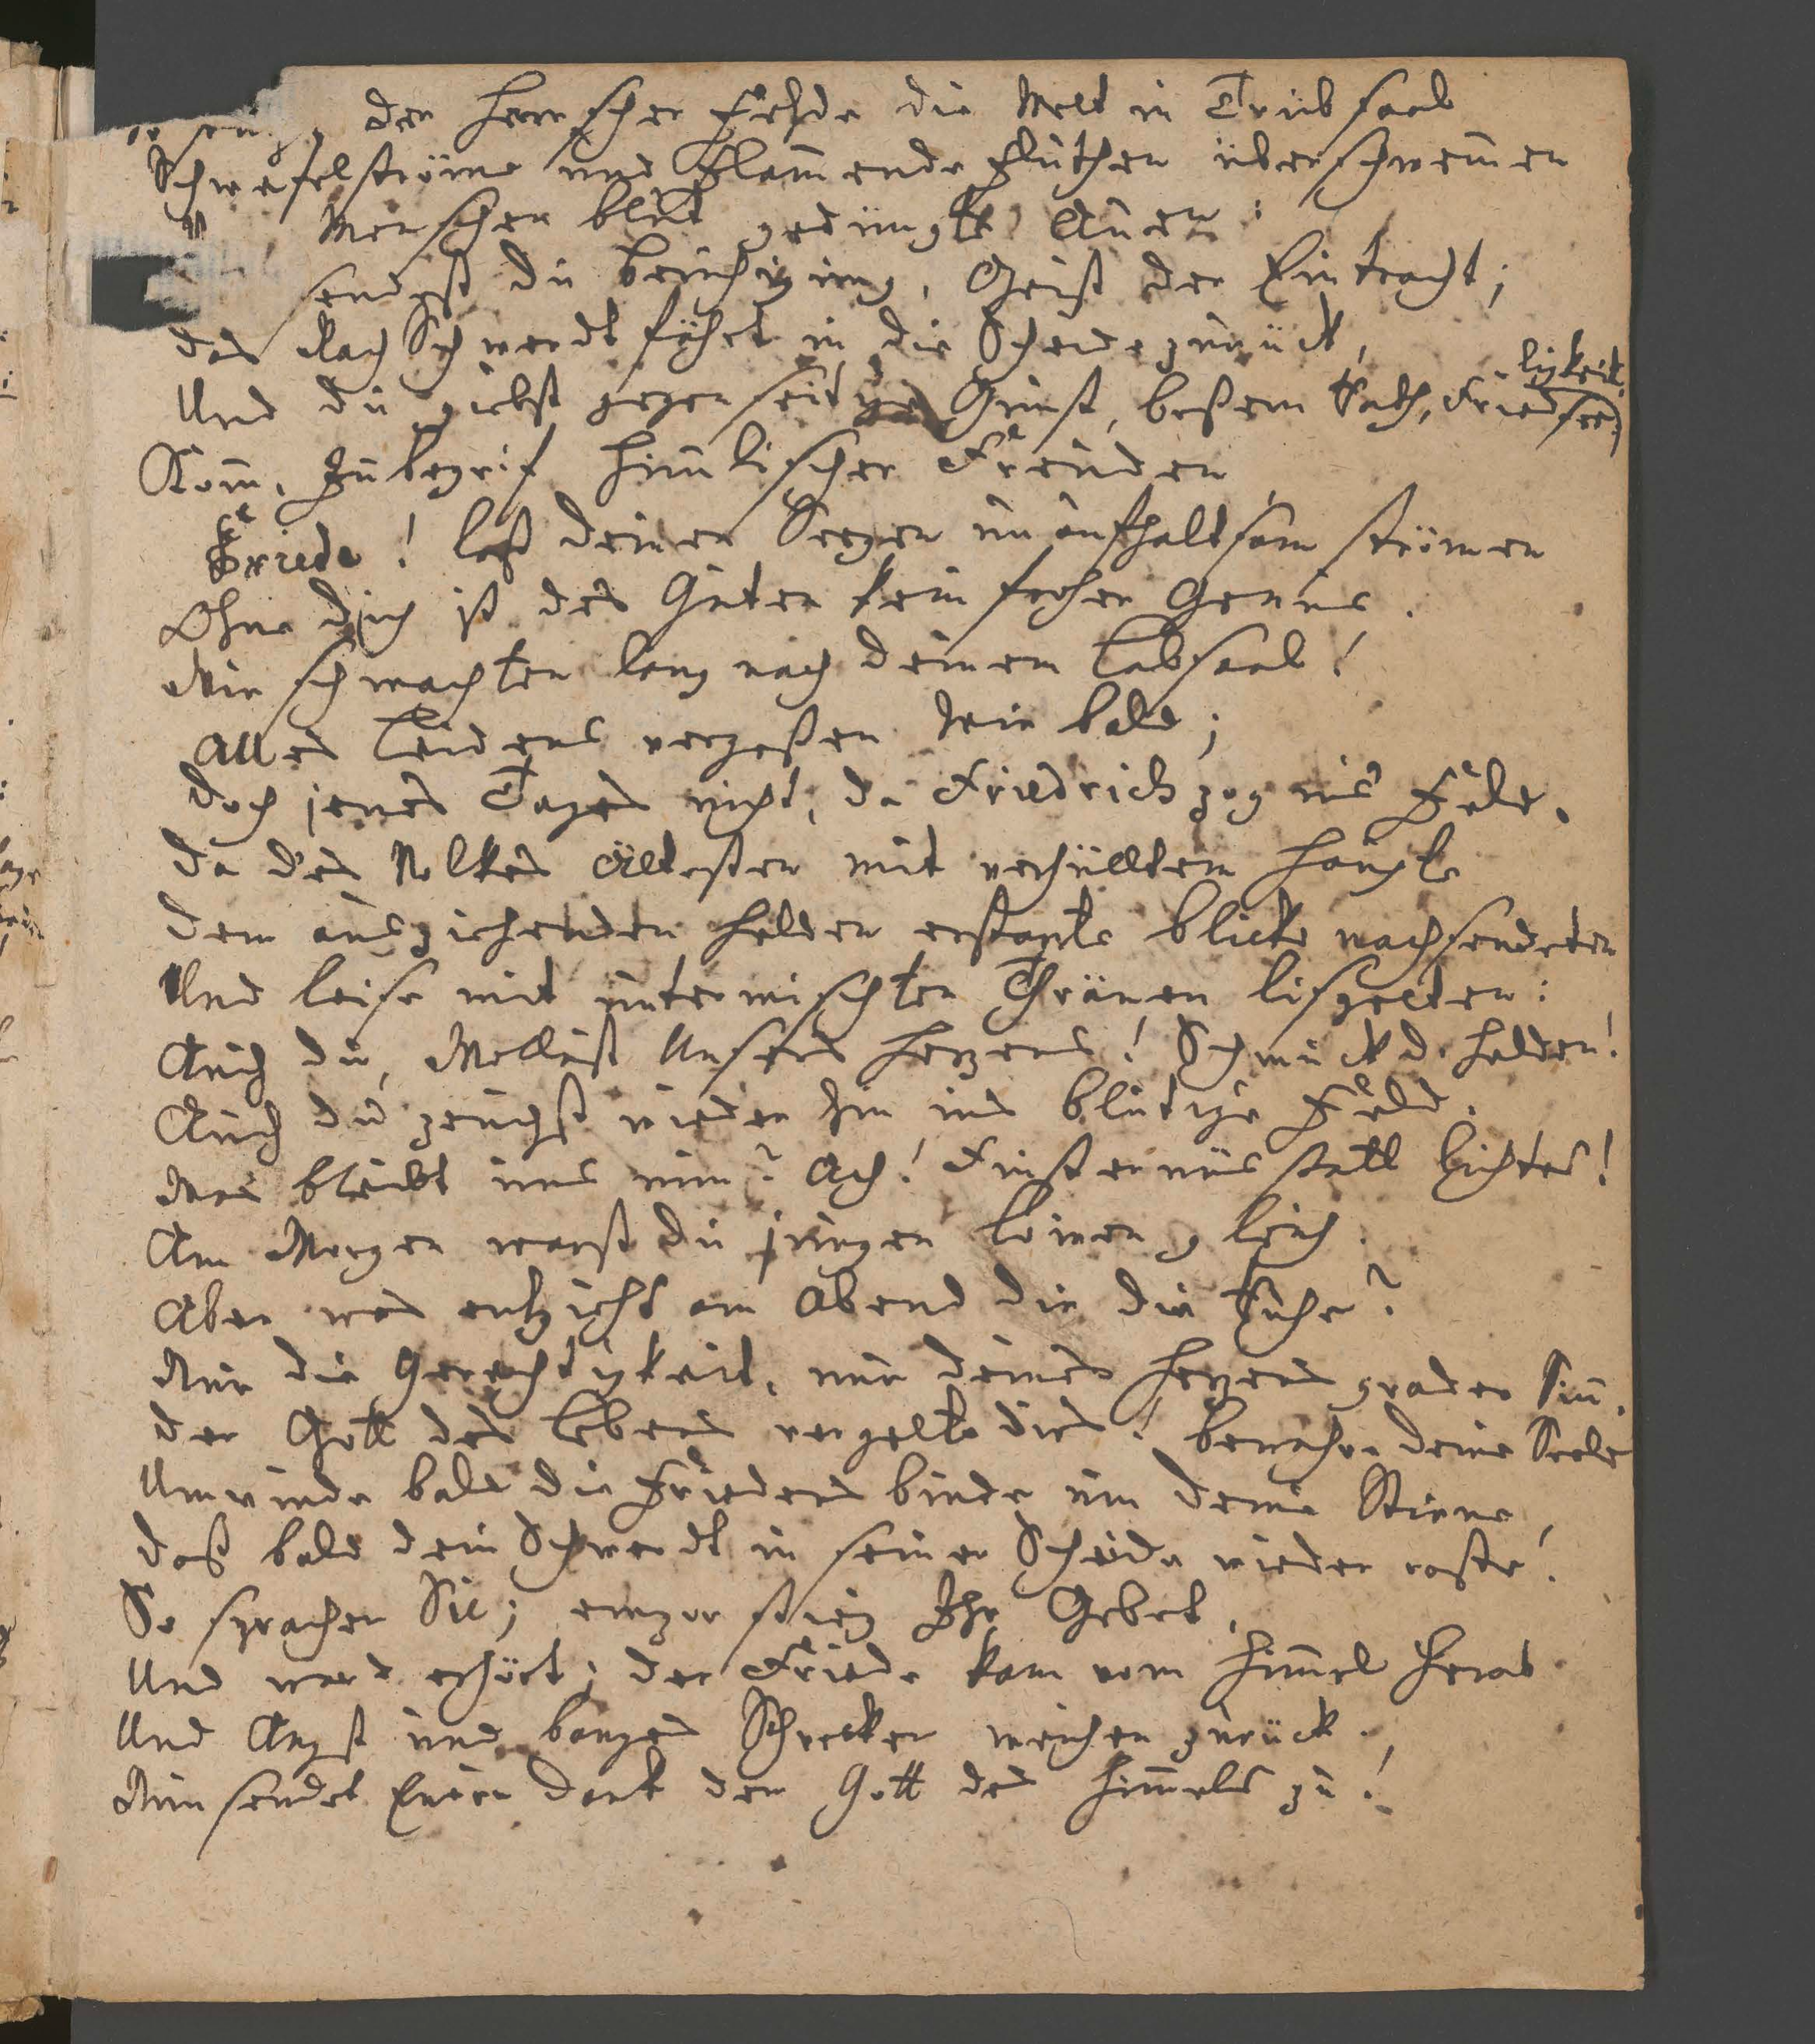 der Herrscher Fehde die Welt in Trübsaal
Schwefelströme und Flam̄ende Fluthen überschwem̄en
Menschen blut gedüngte Auen:
sendest du beruhigung, Geist der Eintracht;
das Rach Schwerdt fährt in die Scheide zurück,
Und du giebst gegenseitge Gunst, beßern Rath, Friedseeligkeit.
Kom̄, Inbegrif him̄lischer Freuden
Friede! laß deinen Seegen unaufhaltsam strömen
Ohne dich ist des Guten kein froher Genuss.
Wir schmachten lang nach deinem Labsaal!
Alles Leidens vergeßen wir bald;
Doch jenes Tages nicht, da Friedrich zog ins Feld.
Da des Volkes Ältesten mit verhülltem Haupte
dem ausziehenden Helden erstarte blicke nachsendeten
Und leise mit untermischten Thränen lispelten:
Auch du, Wollust Unsers Herzens! Schmuck d. Helden!
Auch du zeuchst wieder hin ins blutige Feld.
Was bleibt uns nun? Ach! Finsternüs statt lichtes!
Am Morgen warst du jungen Löwen gleich.
Aber was entzieht am Abend dir die Ruhe?
Nur die Gerechtigkeit, nur deines Herzens grader Sin̄.
der Gott des Lebens vergelte dirs! bewahre deine Seele
Umwinde bald die Friedens binde um deine Stirne,
daß bald dein Schwerdt in seiner Scheide wieder raste!
So sprachen Sie; empor stieg Ihr Gebet,
Und ward erhört; der Friede kam vom Him̄el herab
Und Angst und banges Schrecken weichen zurück.
Nun sendet Euren Dank dem Gott des Him̄els zu!